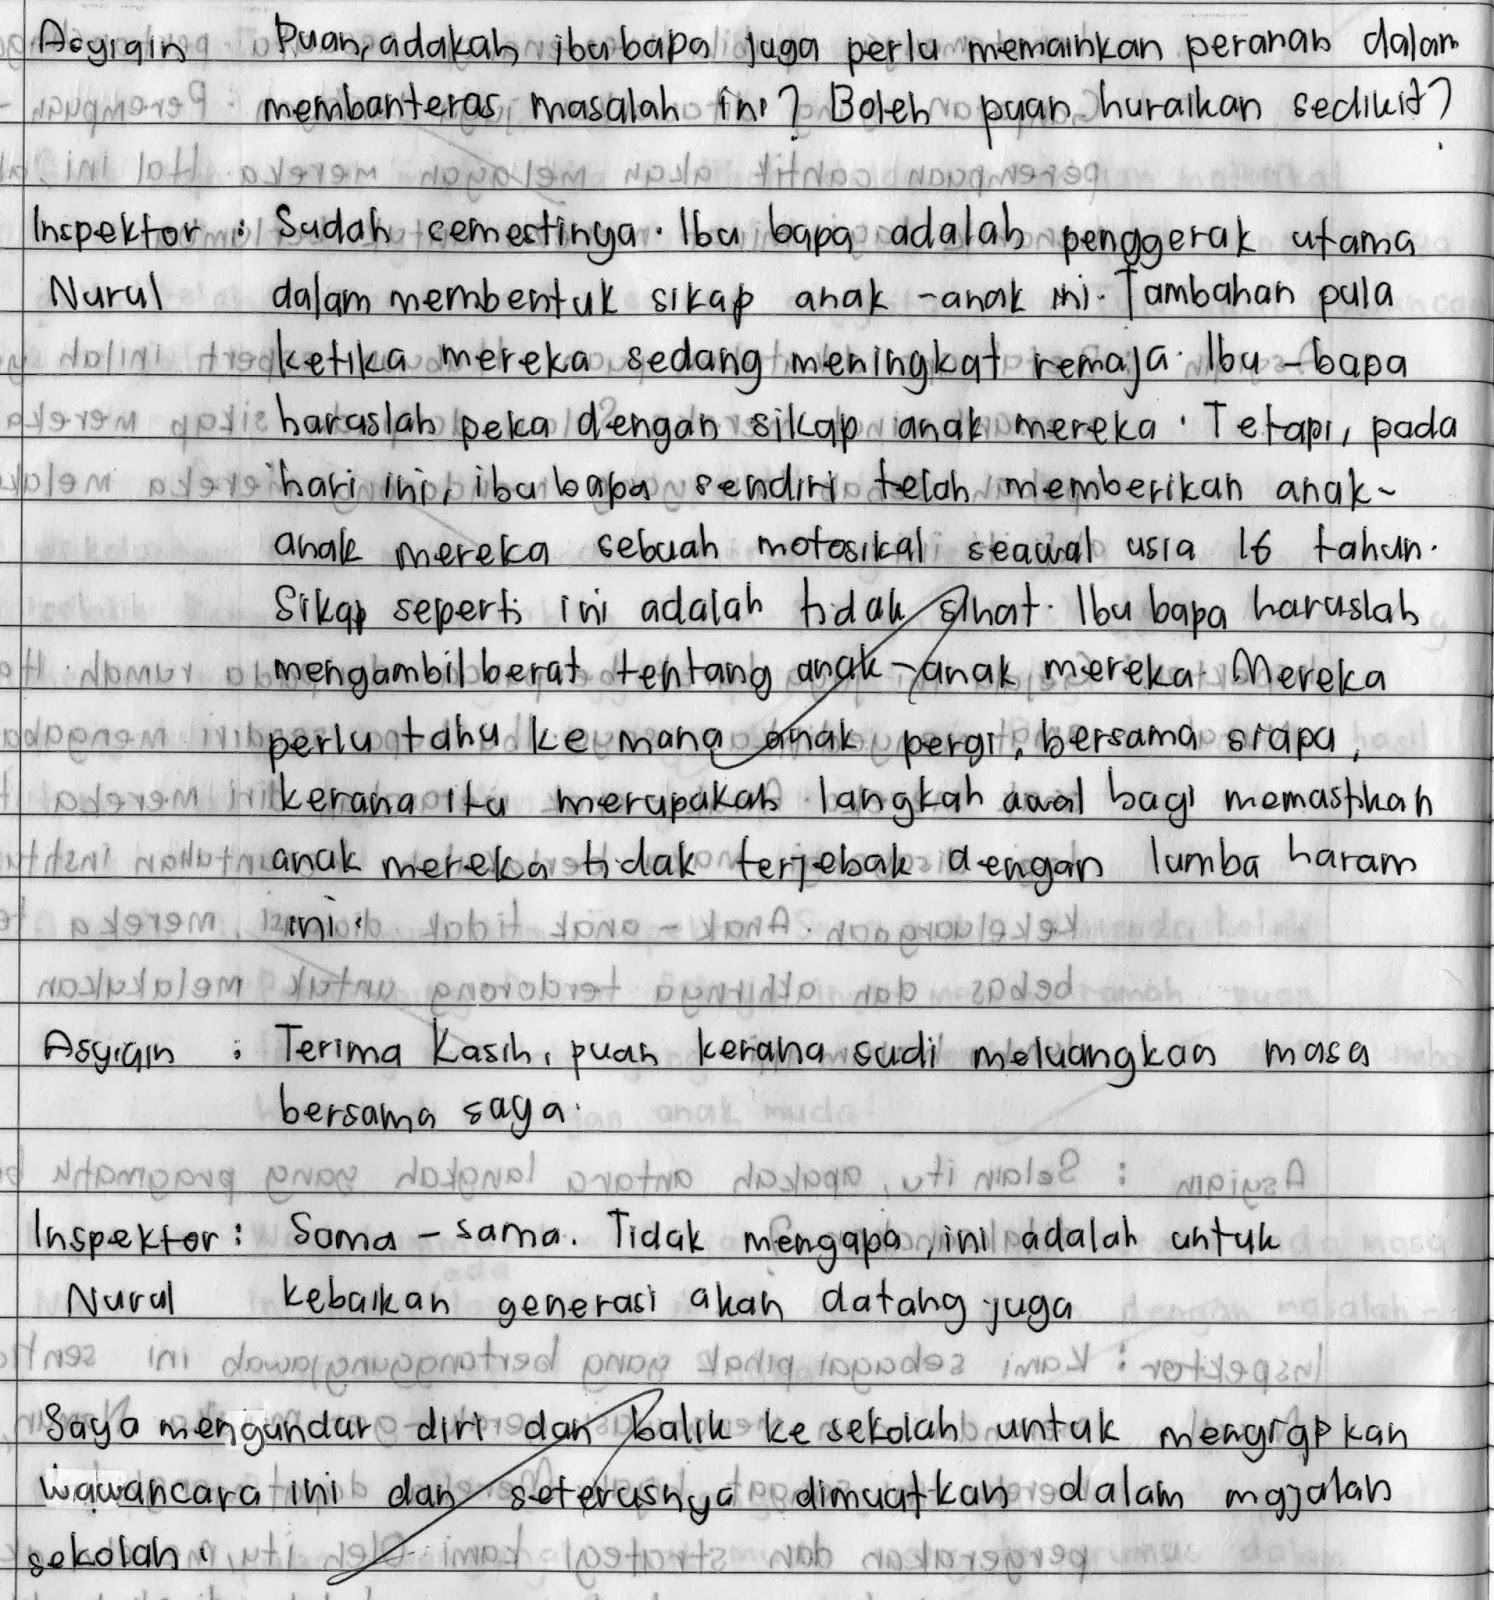 Asyiqin Puan, adakah ibubapa juga perlu memainkan peranan dalam
membanteras masalah ini? Boleh puan huraikan sedikit?
Inspektor : Sudah semestinya. Ibu bapa adalah penggerak utama
Nurul dalam membentuk sikap anak-anak ini. Tambahan pula
ketika mereka sedang meningkat remaja. Ibu-bapa
haruslah peka dengan sikap anak mereka. Tetapi, pada
hari ini, ibu bapa sendiri telah memberikan anak-
anak mereka sebuah motosikal seawal usia 16 tahun.
Sikap seperti ini adalah tidak sihat. Ibu bapa haruslah
mengambil berat tentang anak-anak mereka. Mereka
perlu tahu ke mana anak pergi, bersama siapa,
kerana itu merupakan langkah awal bagi memastikan
anak mereka tidak terjebak dengan lumba haram
ini.
Asyiqin : Terima Kasih, puan kerana sudi meluangkan masa
bersama saya.
Inspektor : Sama-sama. Tidak mengapa, ini adalah untuk
Nurul kebaikan generasi akan datang juga
Saya mengundur diri dan balik ke sekolah untuk mengiapkan
wawancara ini dan seterusnya dimuatkan dalam majalah
sekolah.